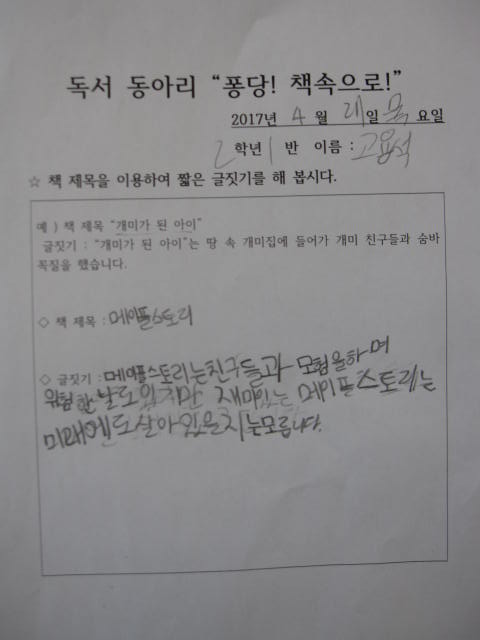 독서 동아리 “퐁당! 책속으로!”
2017년 4월 일 목요일
2학년 1반 이름 : 고용석
☆ 책 제목을 이용하여 짧은 글짓기를 해 봅시다.
예 ) 책 제목 “개미가 된 아이”
글짓기 : “개미가 된 아이”는 땅 속 개미집에 들어가 개미 친구들과 숨바
꼭질을 했습니다.
◇ 책 제목 : 메이플스토리
◇ 글짓기 : 메이플스토리는친구들과 모험을하며
위험한 날도 있지만 재미있는 메이플스토리는
미래에도 살아있을지는모릅니다.